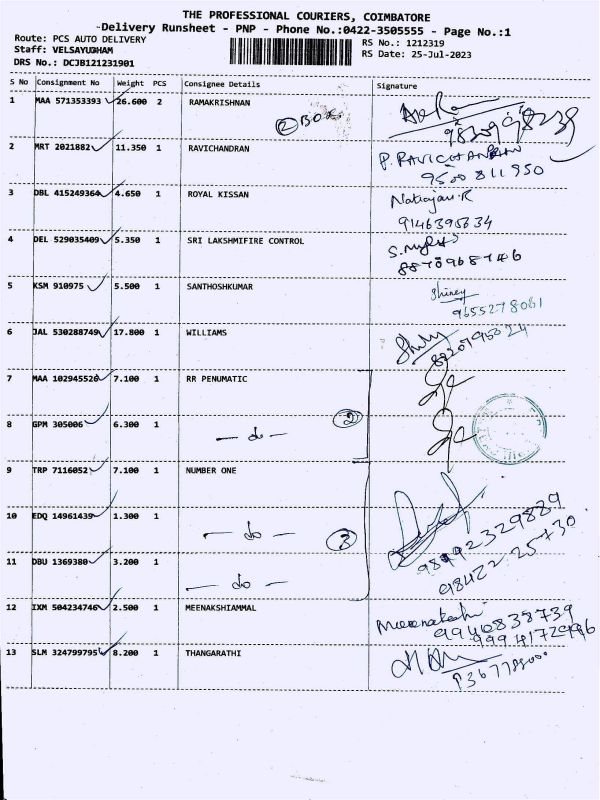 THE PROFESSIONAL COURIERS, COIMBATORE
-Delivery Runsheet - PNP - Phone No.:0422-3505555 - Page No.:1
Route: PCS AUTO DELIVERY
RS No.: 1212319
Staff: VELSAYUGHAM
RS Date: 25-Jul-2023
DRS No.: DCJB121231901
S No Consignment No Weight PCS Consignee Details Signature
1 MAA 571353393 26.600 2 RAMAKRISHNAN
② BOX
2 MRT 2021882 11.350 1 RAVICHANDRAN P. RAVICHANDRAN
9500 811 950
3 DBL 415249364 4.650 1 ROYAL KISSAN Natrajan.R
9146395634
4 DEL 529035409 5.350 1 SRI LAKSHMIFIRE CONTROL
5 KSM 910975 5.500 1 SANTHOSHKUMAR Shiney
9655278061
6 JAL 530288749 17.800 1 WILLIAMS
7 MAA 102945526 7.100 1 RR PENUMATIC
8 GPM 305006 6.300 1 — do — ②
9 TRP 7116052 7.100 1 NUMBER ONE
10 EDQ 14961439 1.300 1 — do — ③
98422 25730
11 DBU 1369380 3.200 1 — do —
12 IXM 504234746 2.500 1 MEENAKSHIAMMAL Meenakshi
9940838739
13 SLM 324799795 8.200 1 THANGARATHI